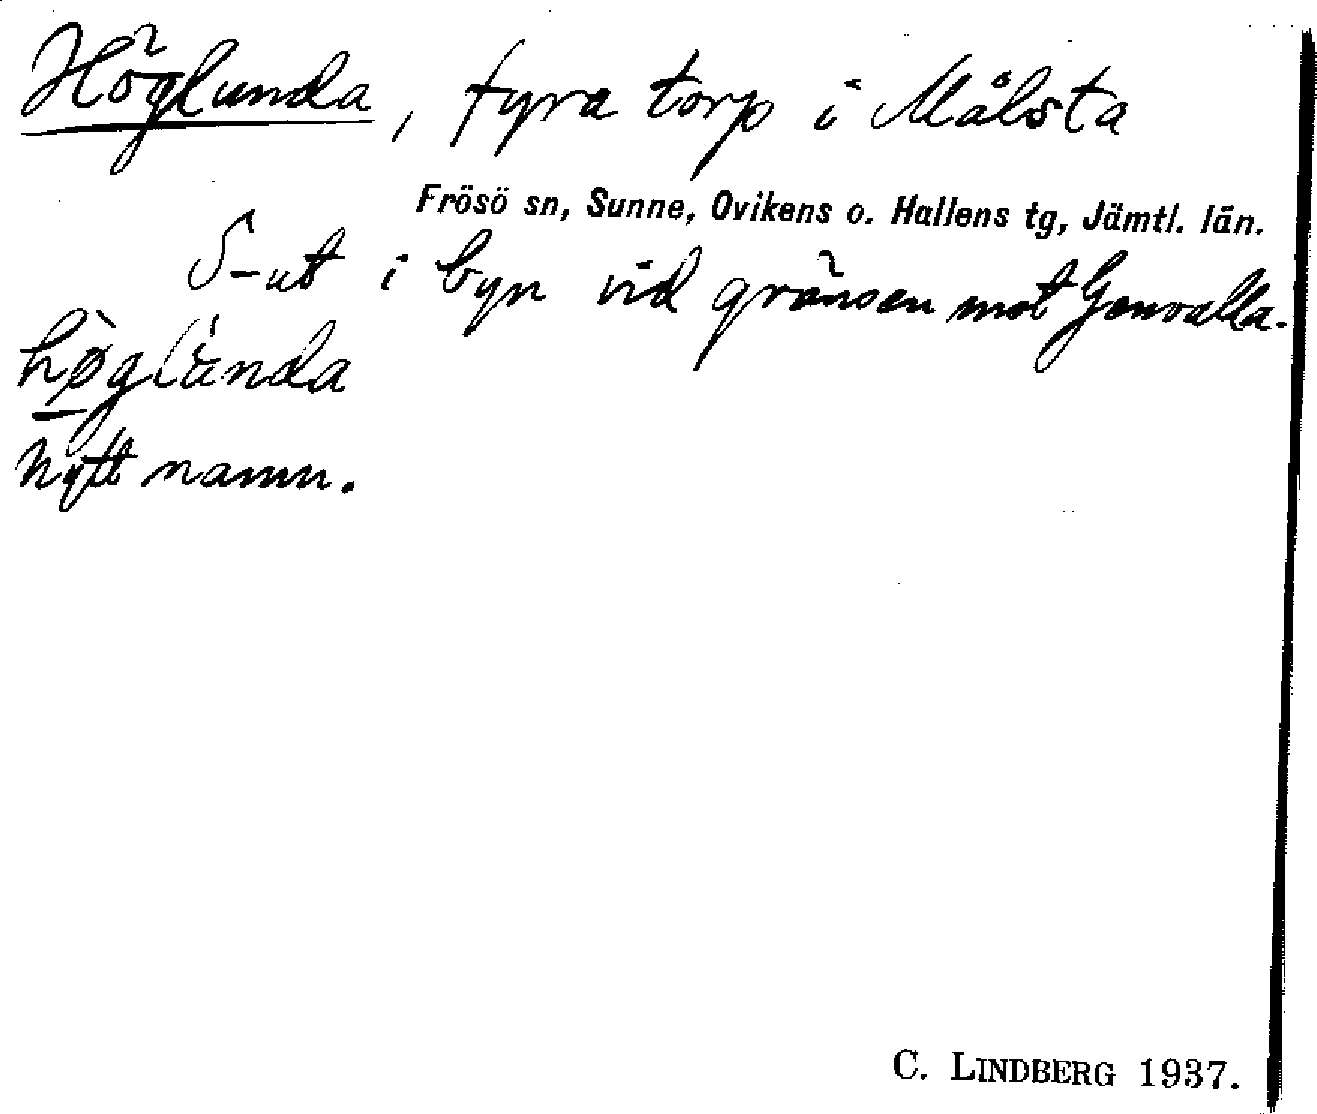 Höglunda, fyra torp i Målsta
Frösö sn, Sunne, Ovikens o. Hallens tg, Jämtl. län.
S-ut i byn vid gränsen mot Genvalla.
hø̀glúnda
Nytt namn.
C. LINDBERG 1937.